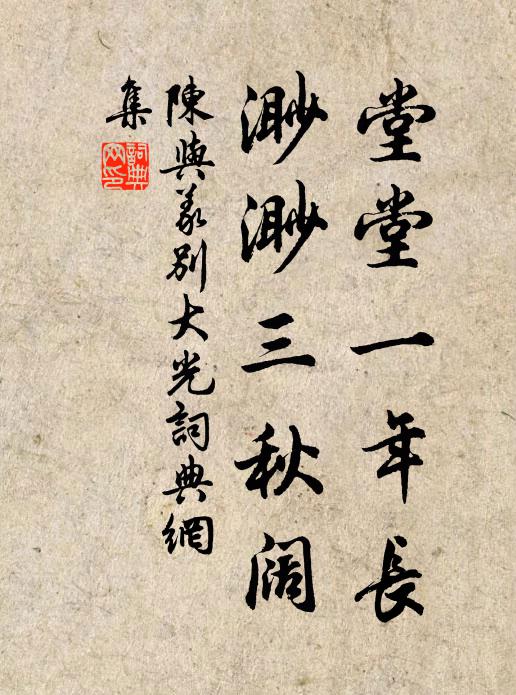 堂堂一年長
渺渺三秋闊
陳與義別大光詞典網
集
詞典網印